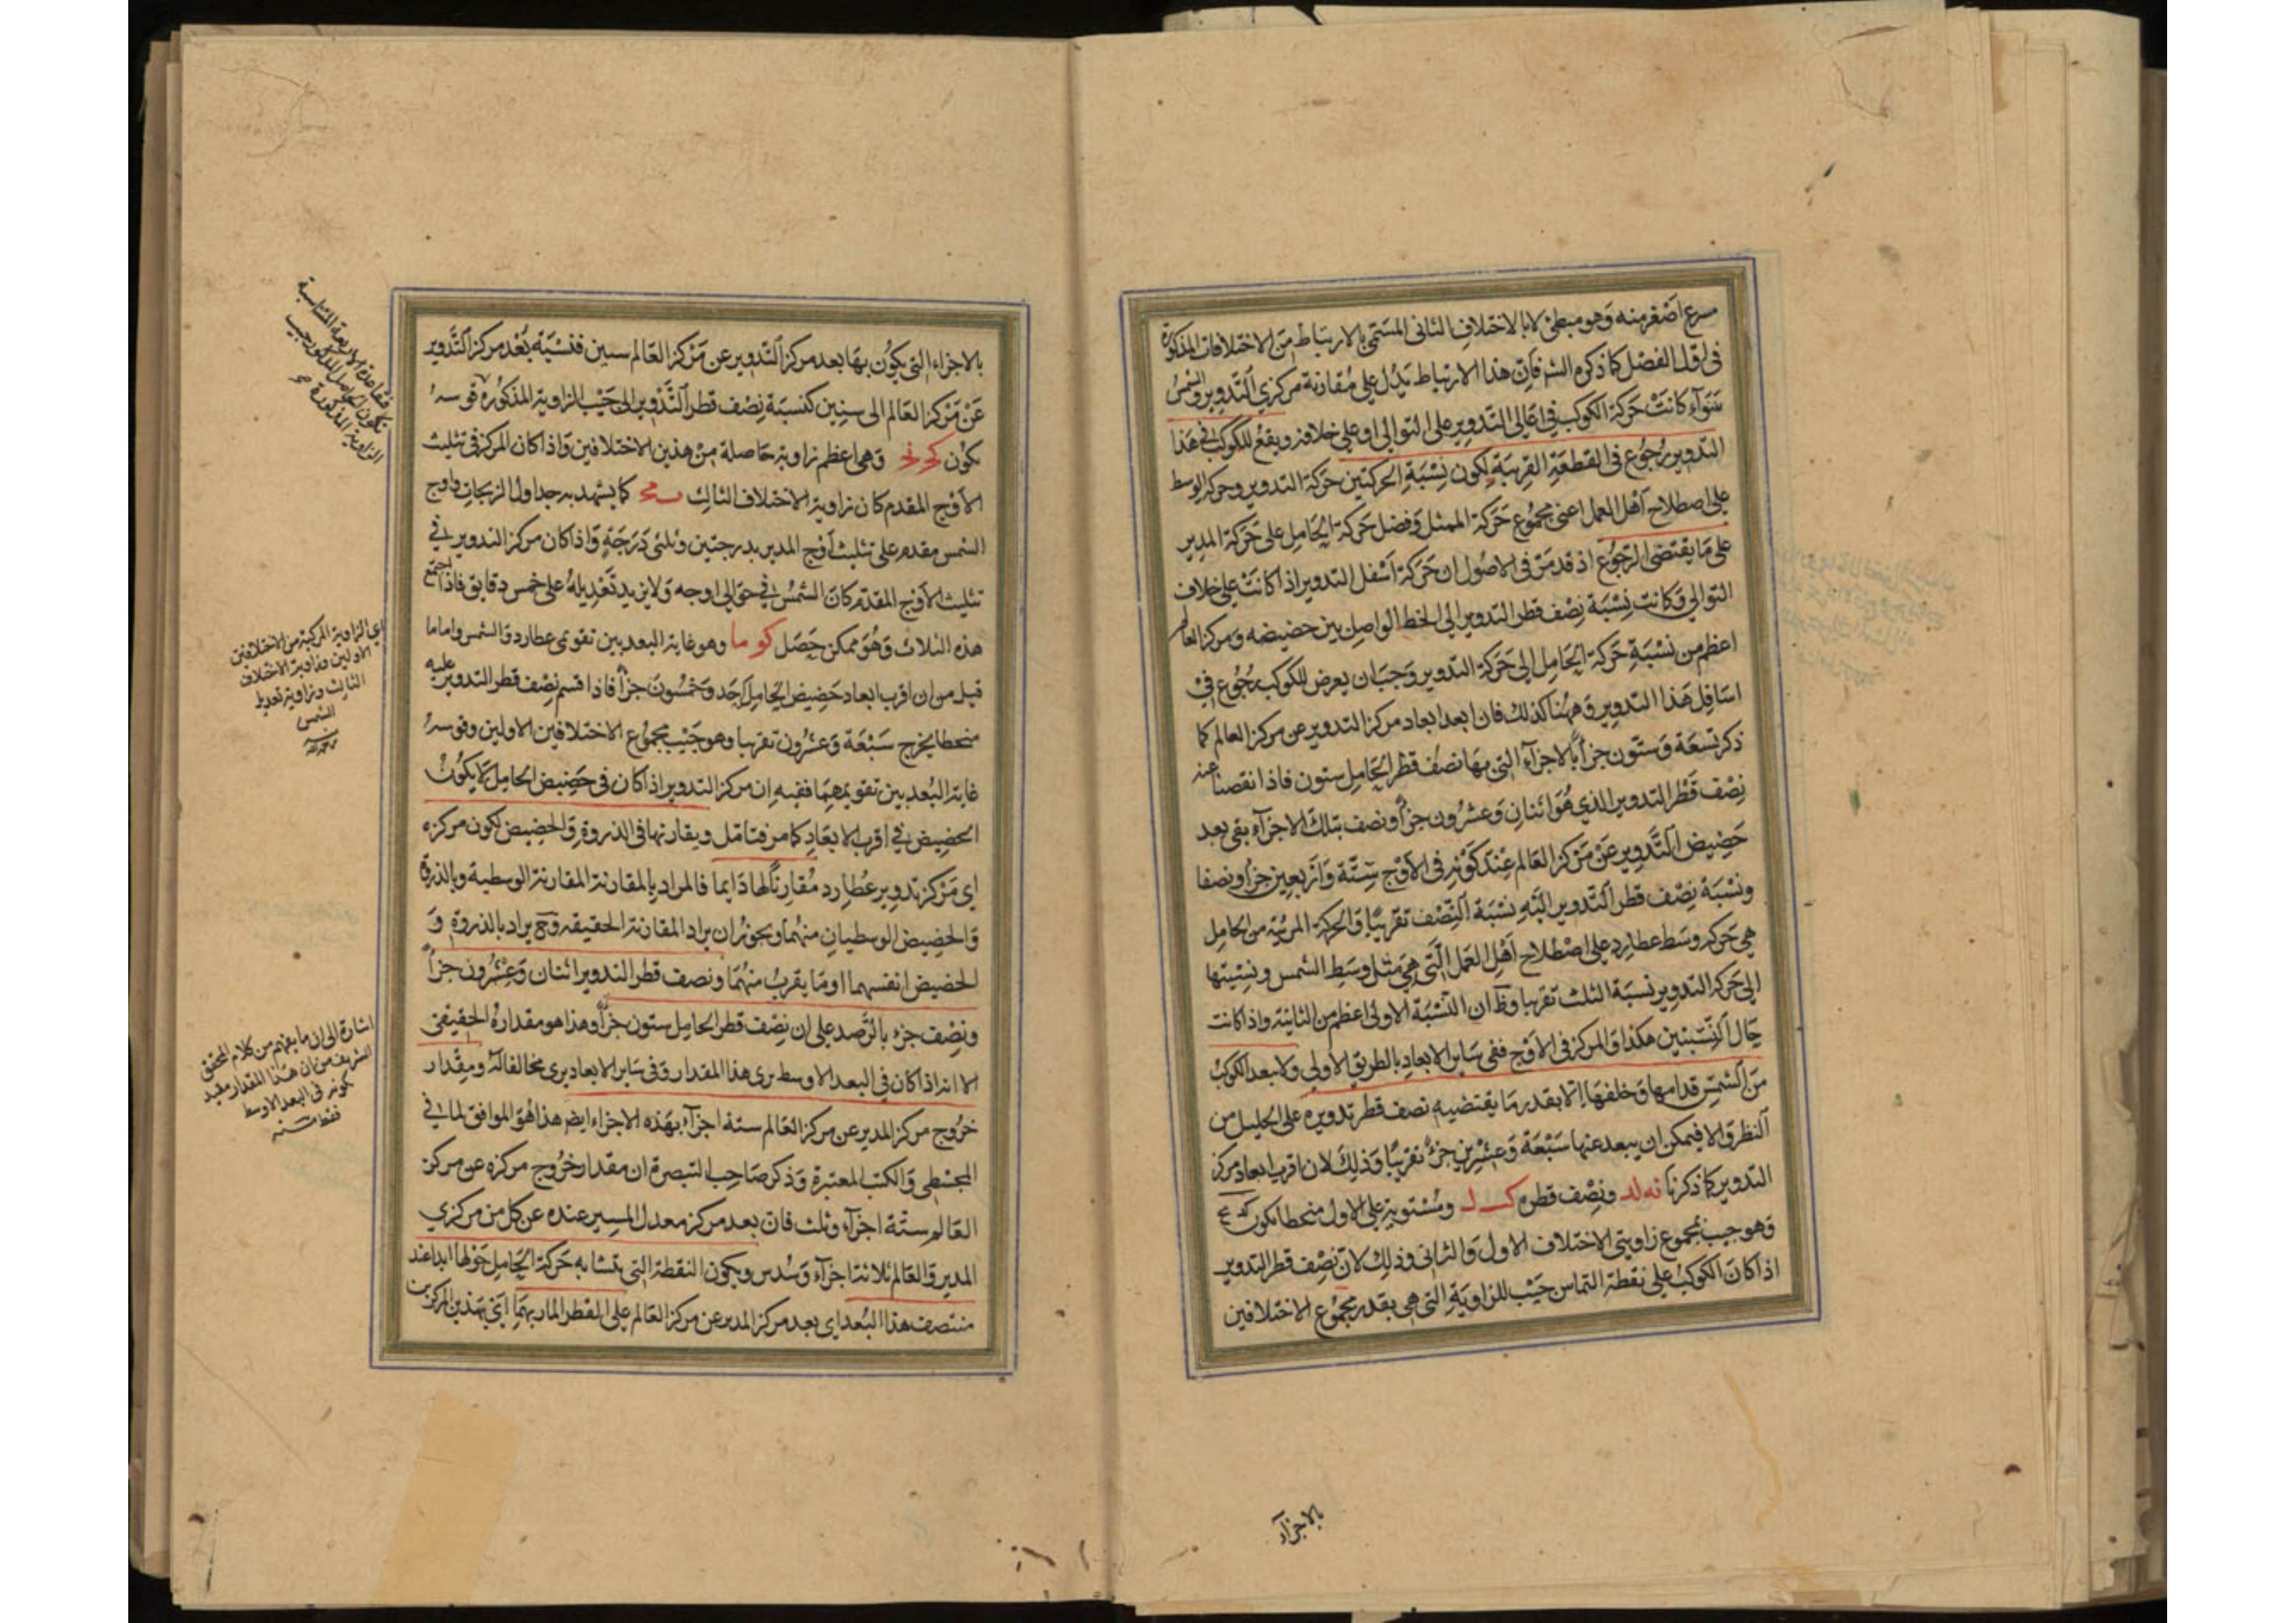 مسرع اصغر منه وهو مبطئ لا بالاختلاف الثانى المسمى بالارتباط من الاختلافات المذكورة
فى اول الفصل كما ذكره الشـ فان هذا الارتباط يدل على مقارنة مركزي التدوير والشمس
سواء كانت حركة الكوكب فى اعالى التدوير على التوالى او على خلافه ويقع للكوكب فى هذا
التدوير رجوع فى القطعة القريبة لكون نسبة الحركتين حركة التدوير وحركة الوسط
على اصطلاح اهل العمل اعنى مجموع حركة الممثل وفضل حركة الحامل على حركة المدير
على ما يقتضى الرجوع اذ قد مر فى الاصول ان حركة اسفل التدوير اذا كانت على خلاف
التوالي وكانت نسبة نصف قطر التدوير الى الخط الواصل بين حضيضه ومركز العالم
اعظم من نسبة حركة الحامل الى حركة التدوير وجب ان يعرض للكوكب رجوع فى
اسافل هذا التدوير وههنا كذلك فان ابعد ابعاد مركز التدوير عن مركز العالم كما
ذكر تسعة وستون جزأ بالاجزآء التى بها نصف قطر الحامل ستون فاذا نقصنا عنه
نصف قطر التدوير الذي هو اثنان وعشرون جزأ ونصف بتلك الاجزآء بقى بعد
حضيض التدوير عن مركز العالم عند كونه فى الاوج ستة واربعين جزأ ونصفا
ونسبة نصف قطر التدوير اليه نسبة النصف تقريبا والحركة المرئية من الحامل
هى حركة وسط عطارد على اصطلاح اهل العمل التى هى مثل وسط الشمس ونسبتها
الى حركة التدوير نسبة الثلث تقريبا وظ ان النسبة الاولى اعظم من الثانية واذا كانت
حال النسبتين هكذا والمركز فى الاوج ففى سائر الابعاد بالطريق الاولى ولا يبعد الكوكب
من الشمس قدامها وخلفها الا بقدر ما يقتضيه نصف قطر تدويره على الجليل من
النظر والا فيمكن ان يبعد عنها سبعة وعشرين جزأ تقريبا وذلك لان اقرب ابعاد مركز
التدوير كما ذكرنا نه لد ونصف قطره كـ لـ ومستويه على الاول منحطا يكون
وهو جيب مجموع زاويتى الاختلاف الاول والثانى وذلك لان نصف قطر التدوير
اذا كان الكوكب على نقطة التماس جيب للزاوية التى هى بقدر مجموع الاختلافين
بالاجزآء
بالاجزاء التى يكون بها بعد مركز التدوير عن مركز العالم ستين فنسبة بعد مركز التدوير
عن مركز العالم الى ستين كنسبة نصف قطر التدوير الى جيب الزاوية المذكورة قوسه
يكون كح نح وهى اعظم زاوية حاصلة من هذين الاختلافين واذا كان المركز فى تثليث
الاوج المقدم كان زاوية الاختلاف الثالث كما يشهد به جداول الزيجات واوج
الشمس مقدم على تثليث اوج المدير بدرجتين وثلثى درجة واذا كان مركز التدوير فى
تثليث الاوج المقدم كان الشمس فى حوالى اوجه ولا يزيد تعديله على خمس دقايق فاذا اجتمع
هذه الثلاث وهو ممكن حصل كو ما وهو غاية البعد بين تقومى عطارد والشمس واما ما
قيل من ان اقرب ابعاد حضيض الحامل احد وخمسون جزأ فاذا قسم نصف قطر التدوير عليه
منحطا يخرج سبعة وعشرون تقريبا وهو جيب مجموع الاختلافين الاولين وقوسه
غاية البعد بين تقويمهما ففيه ان مركز التدوير اذا كان فى حضيض الحامل لا يكون
الحضيض فى اقرب الابعاد كما مر فتامل ويقارنها فى الذروة والحضيض لكون مركزه
اى مركز تدوير عطارد مقارنا لها دايما فالمراد بالمقارنة المقارنة الوسطية وبالذروة
والحضيض الوسطيان منهما ويجوز ان يراد المقارنة الحقيقية وح يراد بالذروة و
الحضيض انفسهما او ما يقرب منهما ونصف قطر التدوير اثنان وعشرون جزأ
ونصف جزء بالرصد على ان نصف قطر الحامل ستون جزأ وهذا هو مقداره الحقيقى
الا انه اذا كان فى البعد الاوسط يرى هذا المقدار وفى سائر الابعاد يرى مخالفا له ومقدار
خروج مركز المدير عن مركز العالم ستة اجزآء بهذه الاجزاء ايضا هذا هو الموافق لما فى
المجسطى والكتب المعتبرة وذكر صاحب التبصرة ان مقدار خروج مركزه عن مركز
العالم ستة اجزآء وثلث فان بعد مركز معدل المسير عنده عن كل من مركزي
المدير والعالم ثلاثة اجزآء وسدس ويكون النقطة التى يتشابه حركة الحامل حولها ابدا عند
منتصف هذا البعد اى بعد مركز المدير عن مركز العالم على القطر المار بهما اي بهذين المركزين
فبقاعدة الاربعة المتناسبة
يكون الحاصل المذكور جيب
الزاوية المذكورة
اي الزاوية المركبة من الاختلافين
الاولين وزاوية الاختلاف
الثالث وزاوية تعديل
الشمس
اشارة الى ان ما يفهم من كلام المحقق
الشريف من ان هذا المقدار مقيد
بكونه فى البعد الاوسط
فقط منه